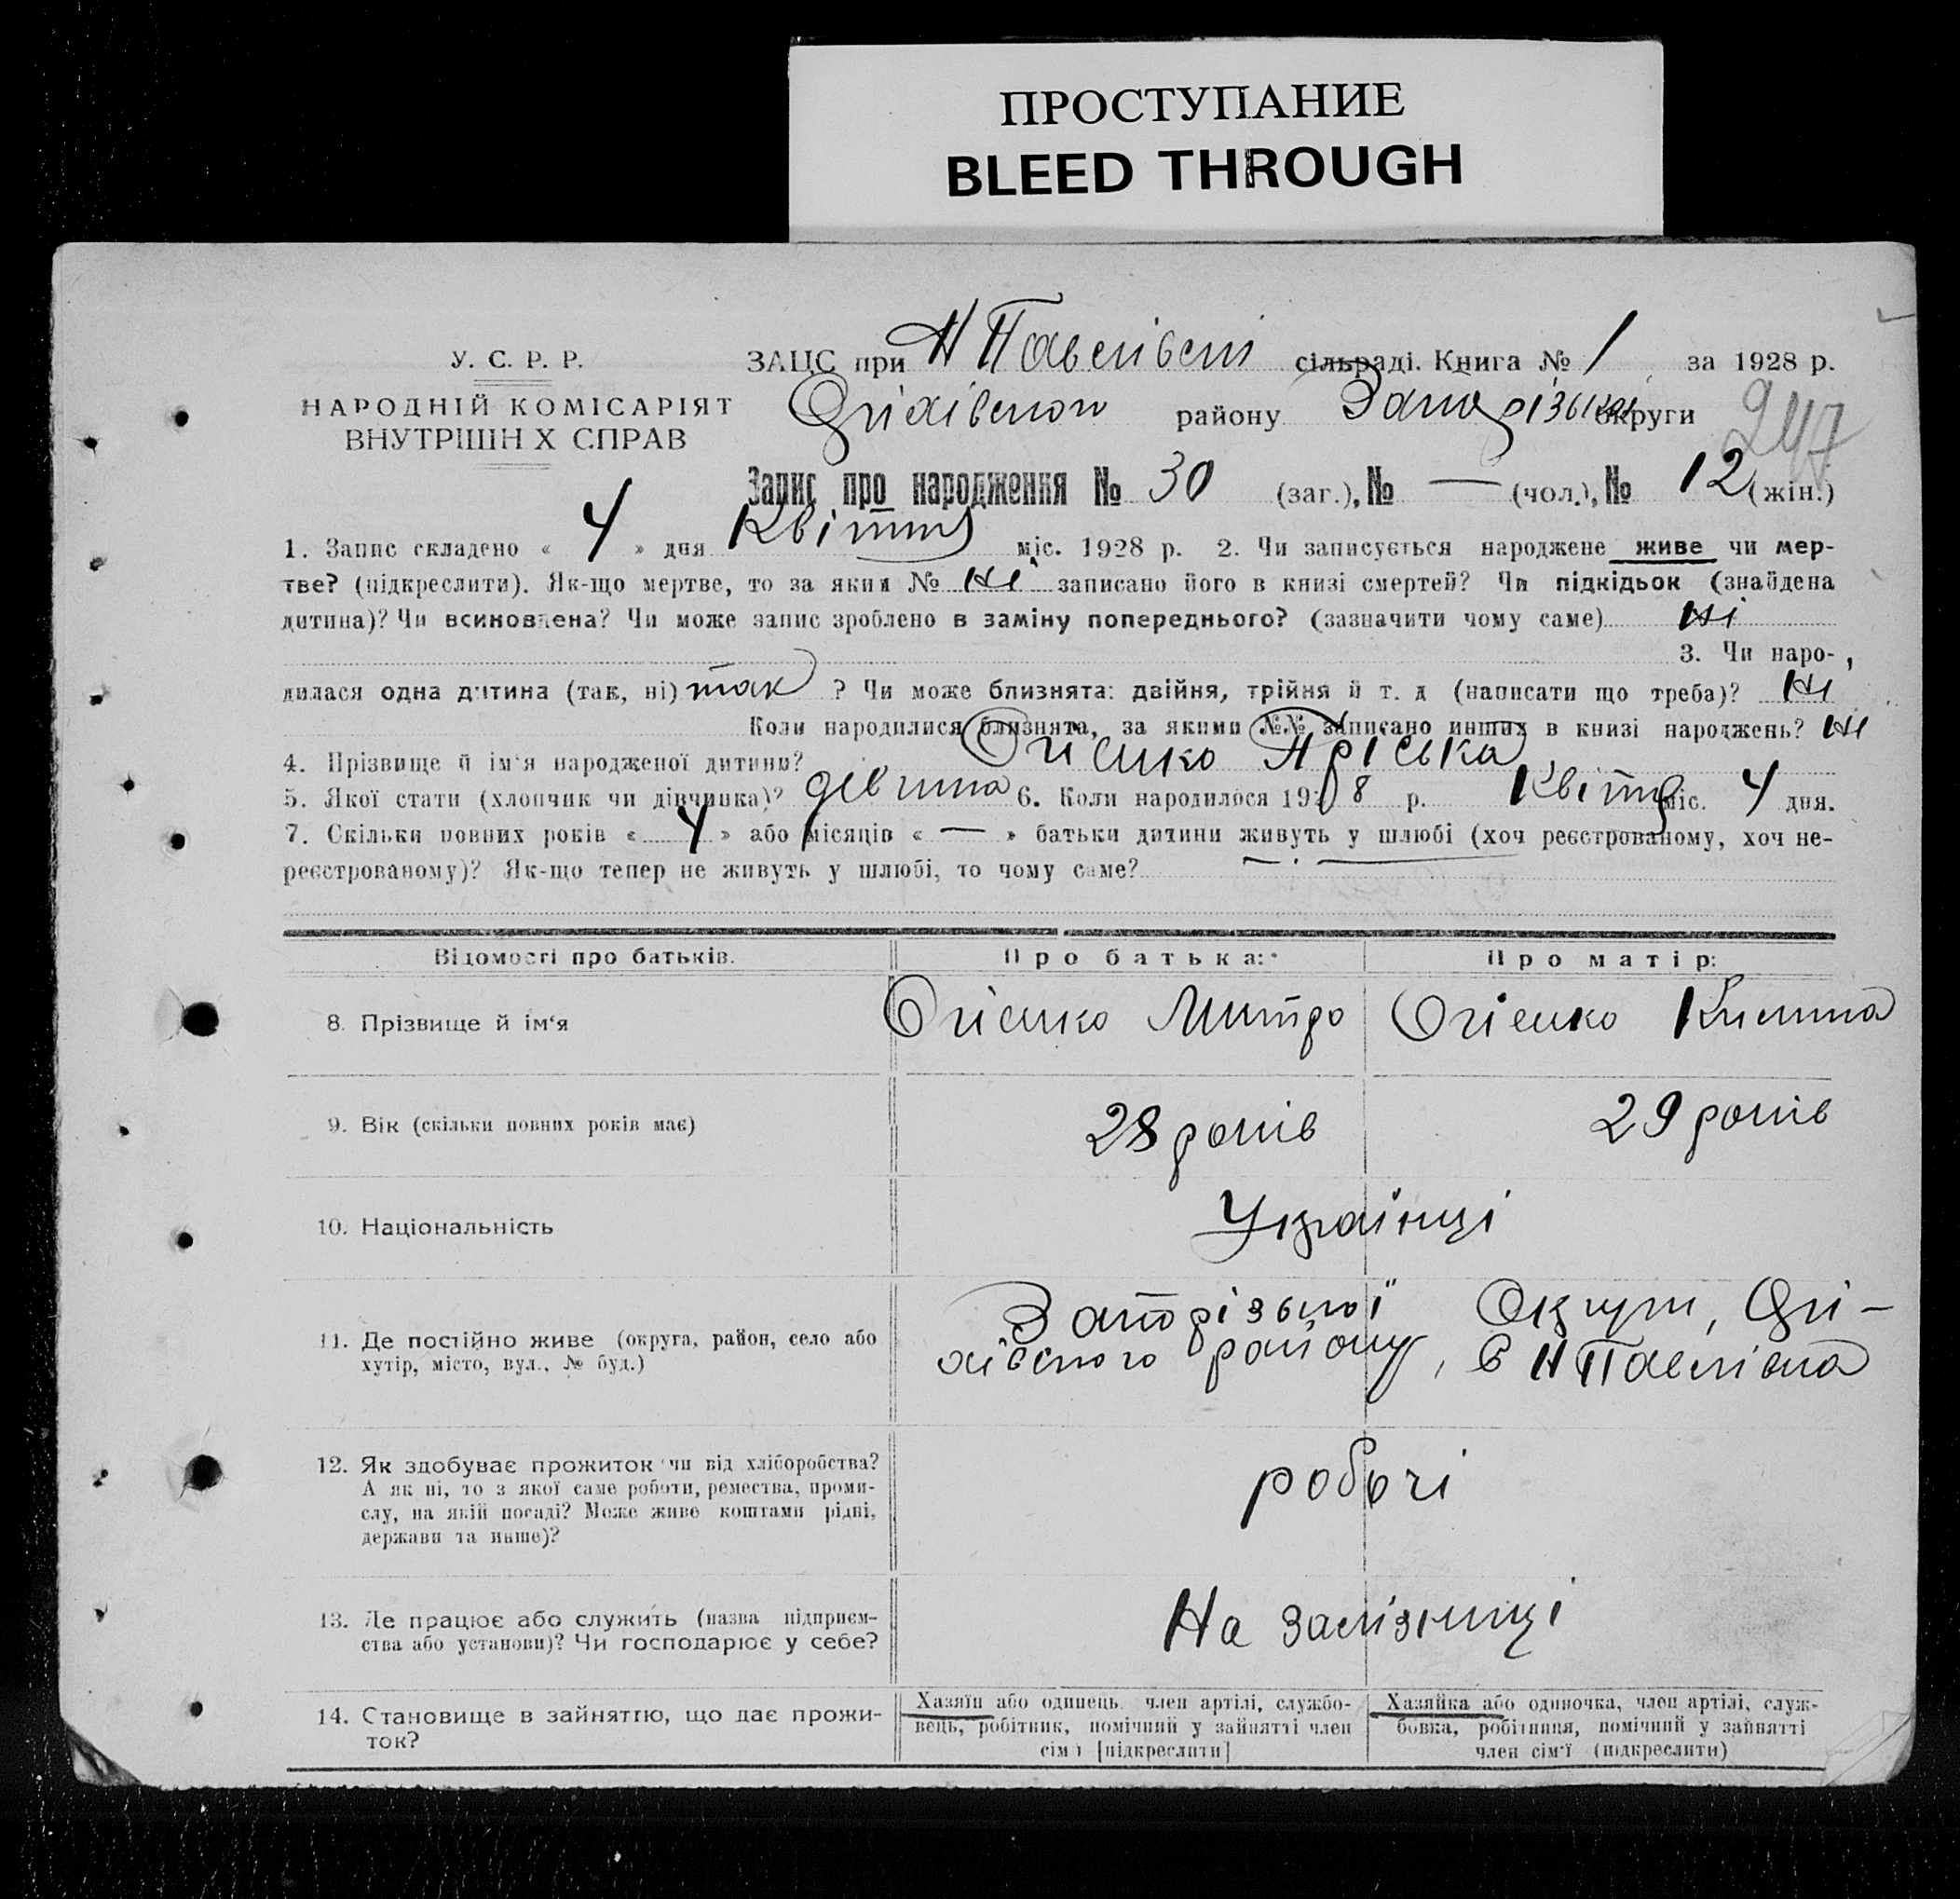 ПРОСТУПАНИЕ
BLEED THROUGH
У. С. Р. Р.
НАРОДНІЙ КОМІСАРІЯТ
ВНУТРІШН Х СПРАВ
ЗАЦС при Н Павлівсні сільраді. Книга № 1 за 1928 р.
Оріхівсного району Запорізької округи
247
Запис про народження № 30 (заг.), № — (чол.), № 12 (жін.)
1. Запис складено « 4 » дня Квітня міс. 1928 р. 2. Чи записується народжене живе чи мер-
тве? (підкреслити). Як-що мертве, то за яким № Ні записано його в книзі смертей? Чи підкідьок (знайдена
дитина)? Чи всиновлена? Чи може запис зроблено в заміну попереднього? (зазначити чому саме) Ні
3. Чи наро-
дилася одна дитина (так, ні) так ? Чи може близнята: двійня, трійня й т. д (написати що треба)? Ні
Коли народилися близнята, за якими №№ записано инших в книзі народжень? Ні
4. Прізвище й ім'я народженої дитини? Огієнко Пріська
5. Якої стати (хлопчик чи дівчинка)? дівчина 6. Коли народилося 1928 р. Квітня міс. 4 дня.
7. Скільки повних років « 4 » або місяців « — » батьки дитини живуть у шлюбі (хоч реєстрованому, хоч не-
реєстрованому)? Як-що тепер не живуть у шлюбі, то чому саме?
Відомості про батьків. Про батька: Про матір:
8. Прізвище й ім'я Огієнко Митро Огієнко Килина
9. Вік (скільки повних років має) 28 років 29 років
10. Національність Українці
11. Де постійно живе (округа, район, село або Запорізької Округи, Орі-
хутір, місто, вул., № буд.) хівсного району, С Н Павлівка
12. Як здобуває прожиток чи від хліборобства?
А як ні, то з якої саме роботи, ремества, проми-
слу, на якій посаді? Може живе коштами рідні,
держави та инше)? робочі
13. Де працює або служить (назва підприєм-
ства або установи)? Чи господарює у себе? На залізниці
14. Становище в зайняттю, що дає прожи-
ток?
Хазяїн або одинець, член артілі, службо-
вець, робітник, помічний у зайнятті член
сім ї [підкреслити]
Хазяйка або одиночка, член артілі, служ-
бовка, робітниця, помічний у зайнятті
член сім'ї (підкреслити)